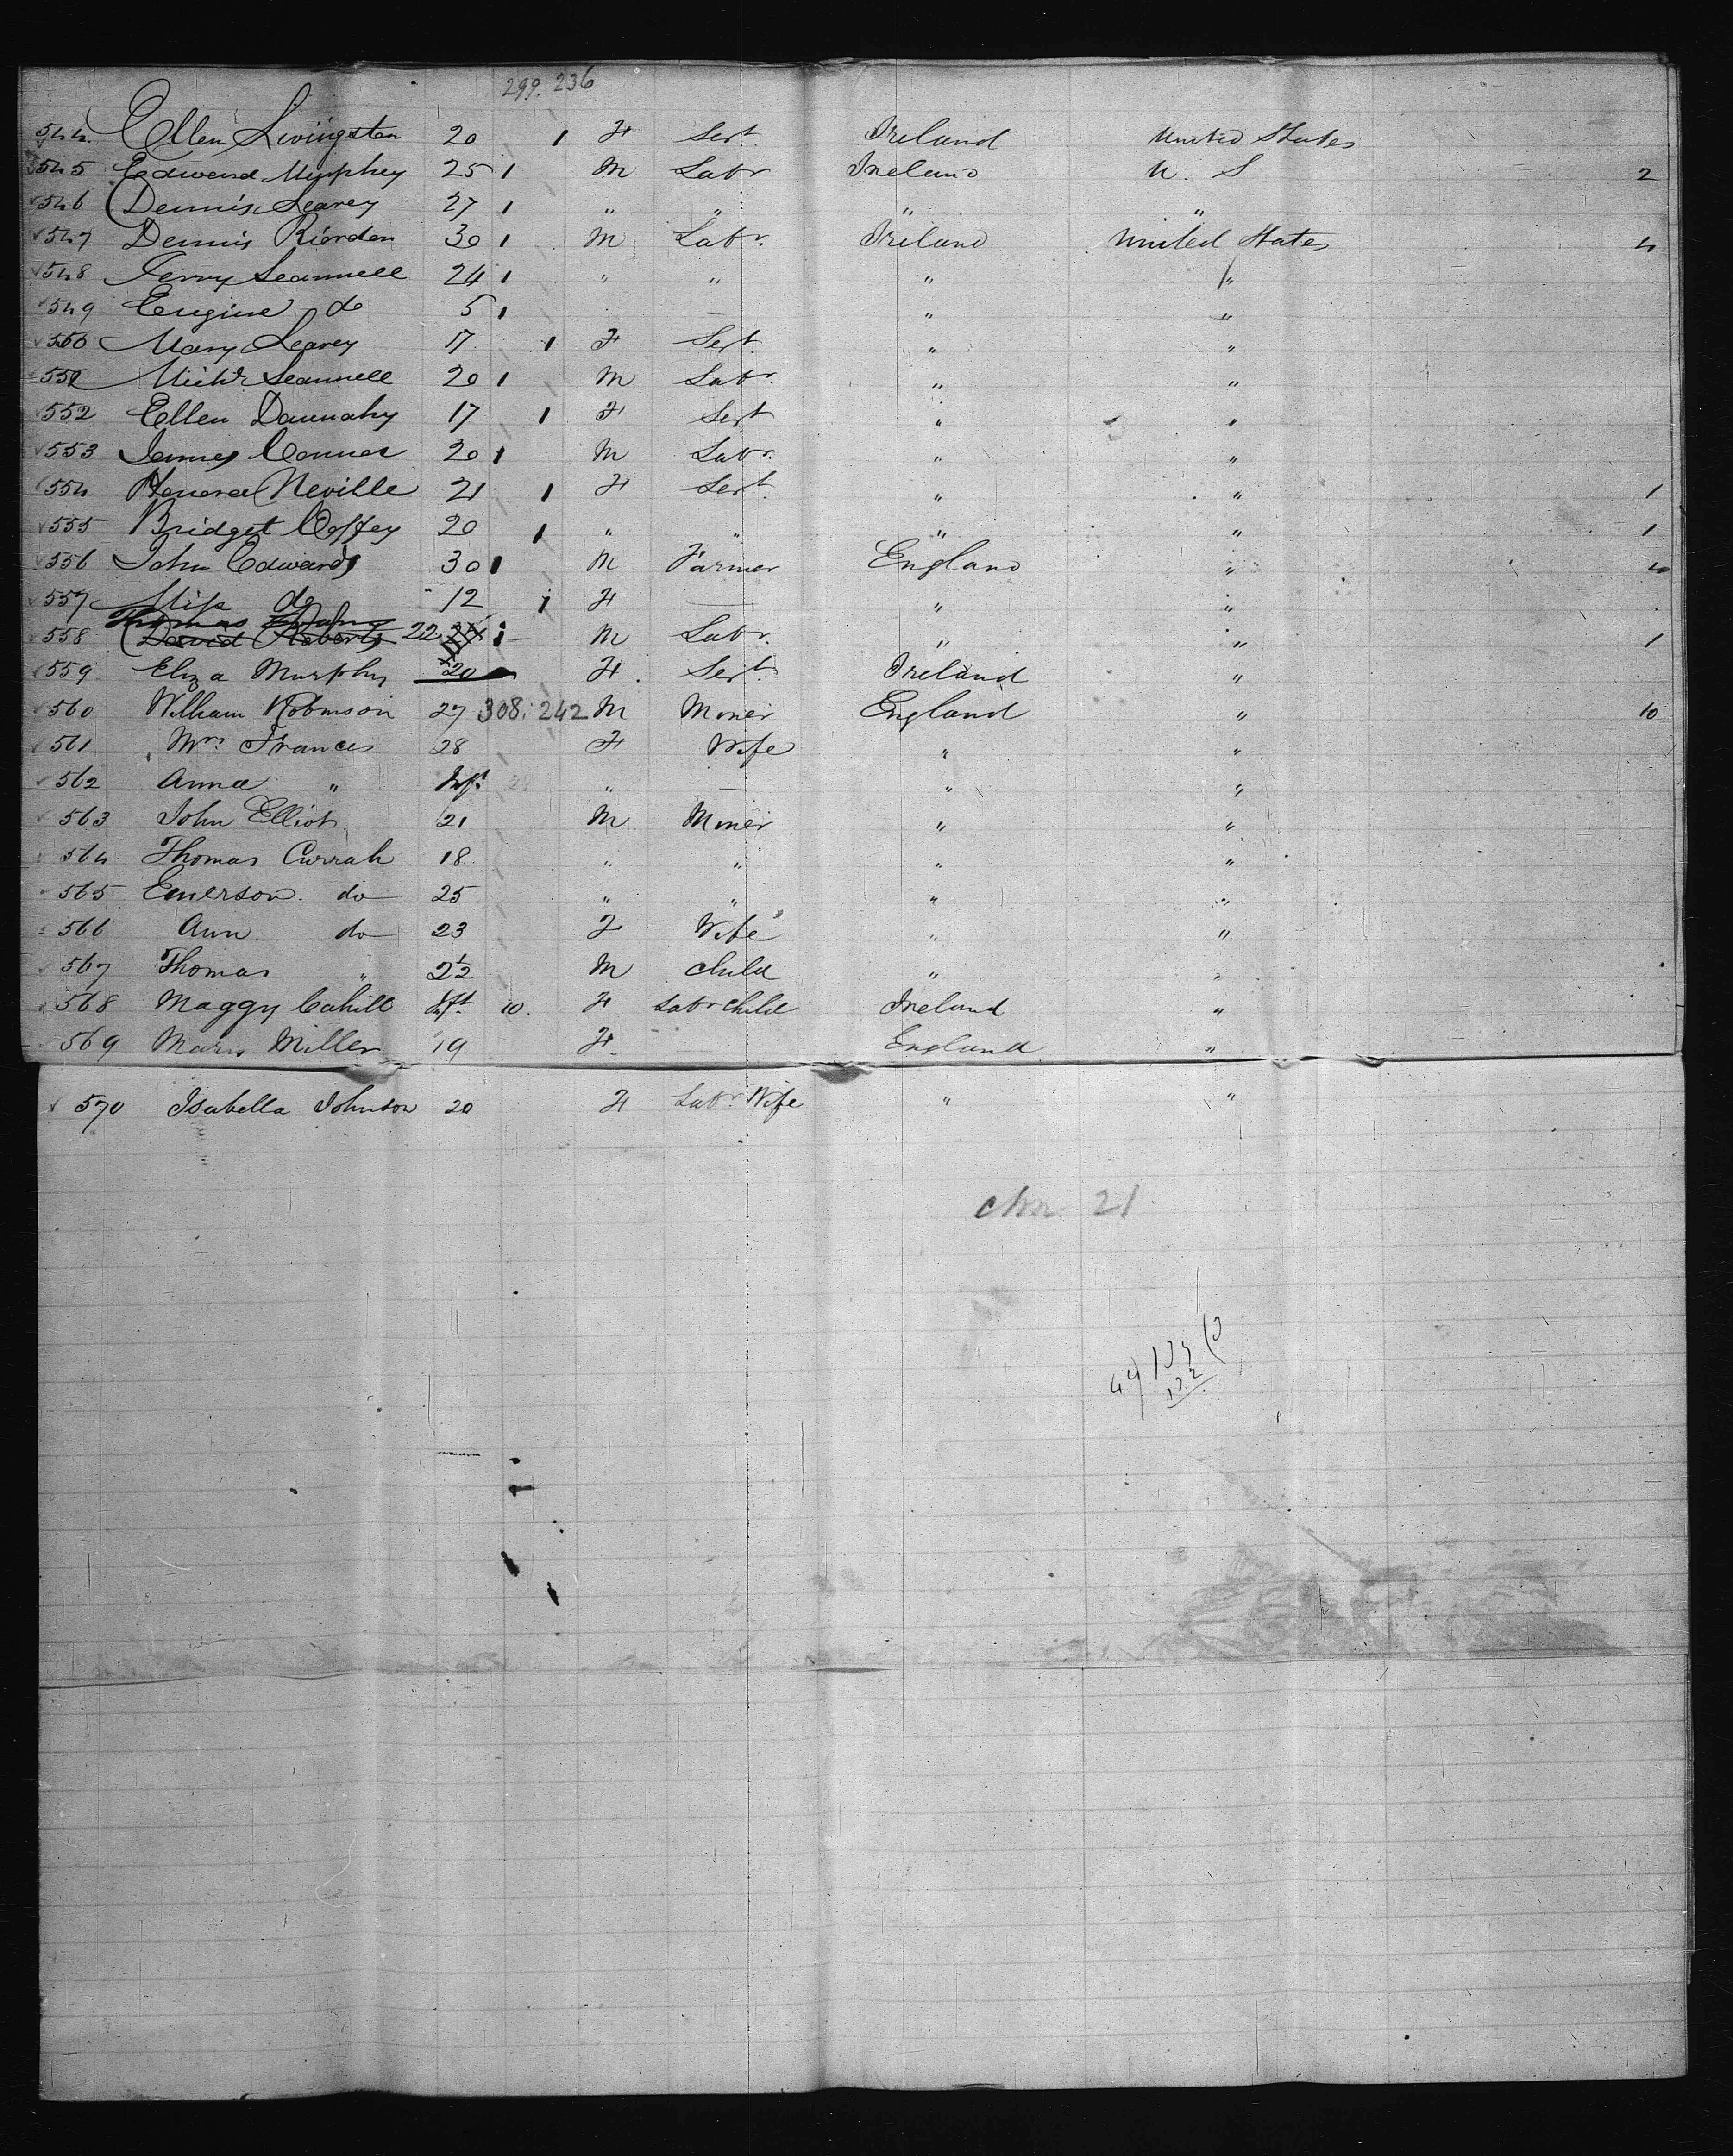 299. 236
544. Ellen Livingston 20 1 F Sert. Ireland United States
545 Edward Murphey 25 1 M Labr Ireland U. S 2
546 Dennis Learey 27 1 " " " "
547 Dennis Riordan 30 1 M Labr. Ireland United States 4
548 Jerry Scannell 24 1 " " " "
549 Eugine do 5 1 — " "
550 Mary Learey 17 1 F Sert. " "
551 Michl Scannell 20 1 M Labr. " "
552 Ellen Dannahy 17 1 F Sert " "
553 James Connor 20 1 M Labr. " "
554 Honora Neville 21 1 F Sert. " " 1
555 Bridget Coffey 20 1 " " " " 1
556 John Edwards 30 1 M Farmer England " 4
557 Miss do 12 1 F — " "
Thomas
558 David Roberts 22 1 M Labr. " " 1
559 Eliza Murphy 20 F. Sert. Ireland "
560 William Robinson 27 308. 242 M Miner England " 10
561 Mrs Frances 28 F Wife " "
562 Anna " Inft " — " "
563 John Elliot 21 M Miner " "
564 Thomas Currah 18 " " " "
565 Emerson. do 25 " " " "
566 Ann. do 23 F Wife " "
567 Thomas " 2½ M Child " "
568 Maggy Cahill Inft. 10. F Labr Child Ireland "
569 Mary Miller 19 F England "
570 Isabella Johnson 20 F Labr. Wife " "
21